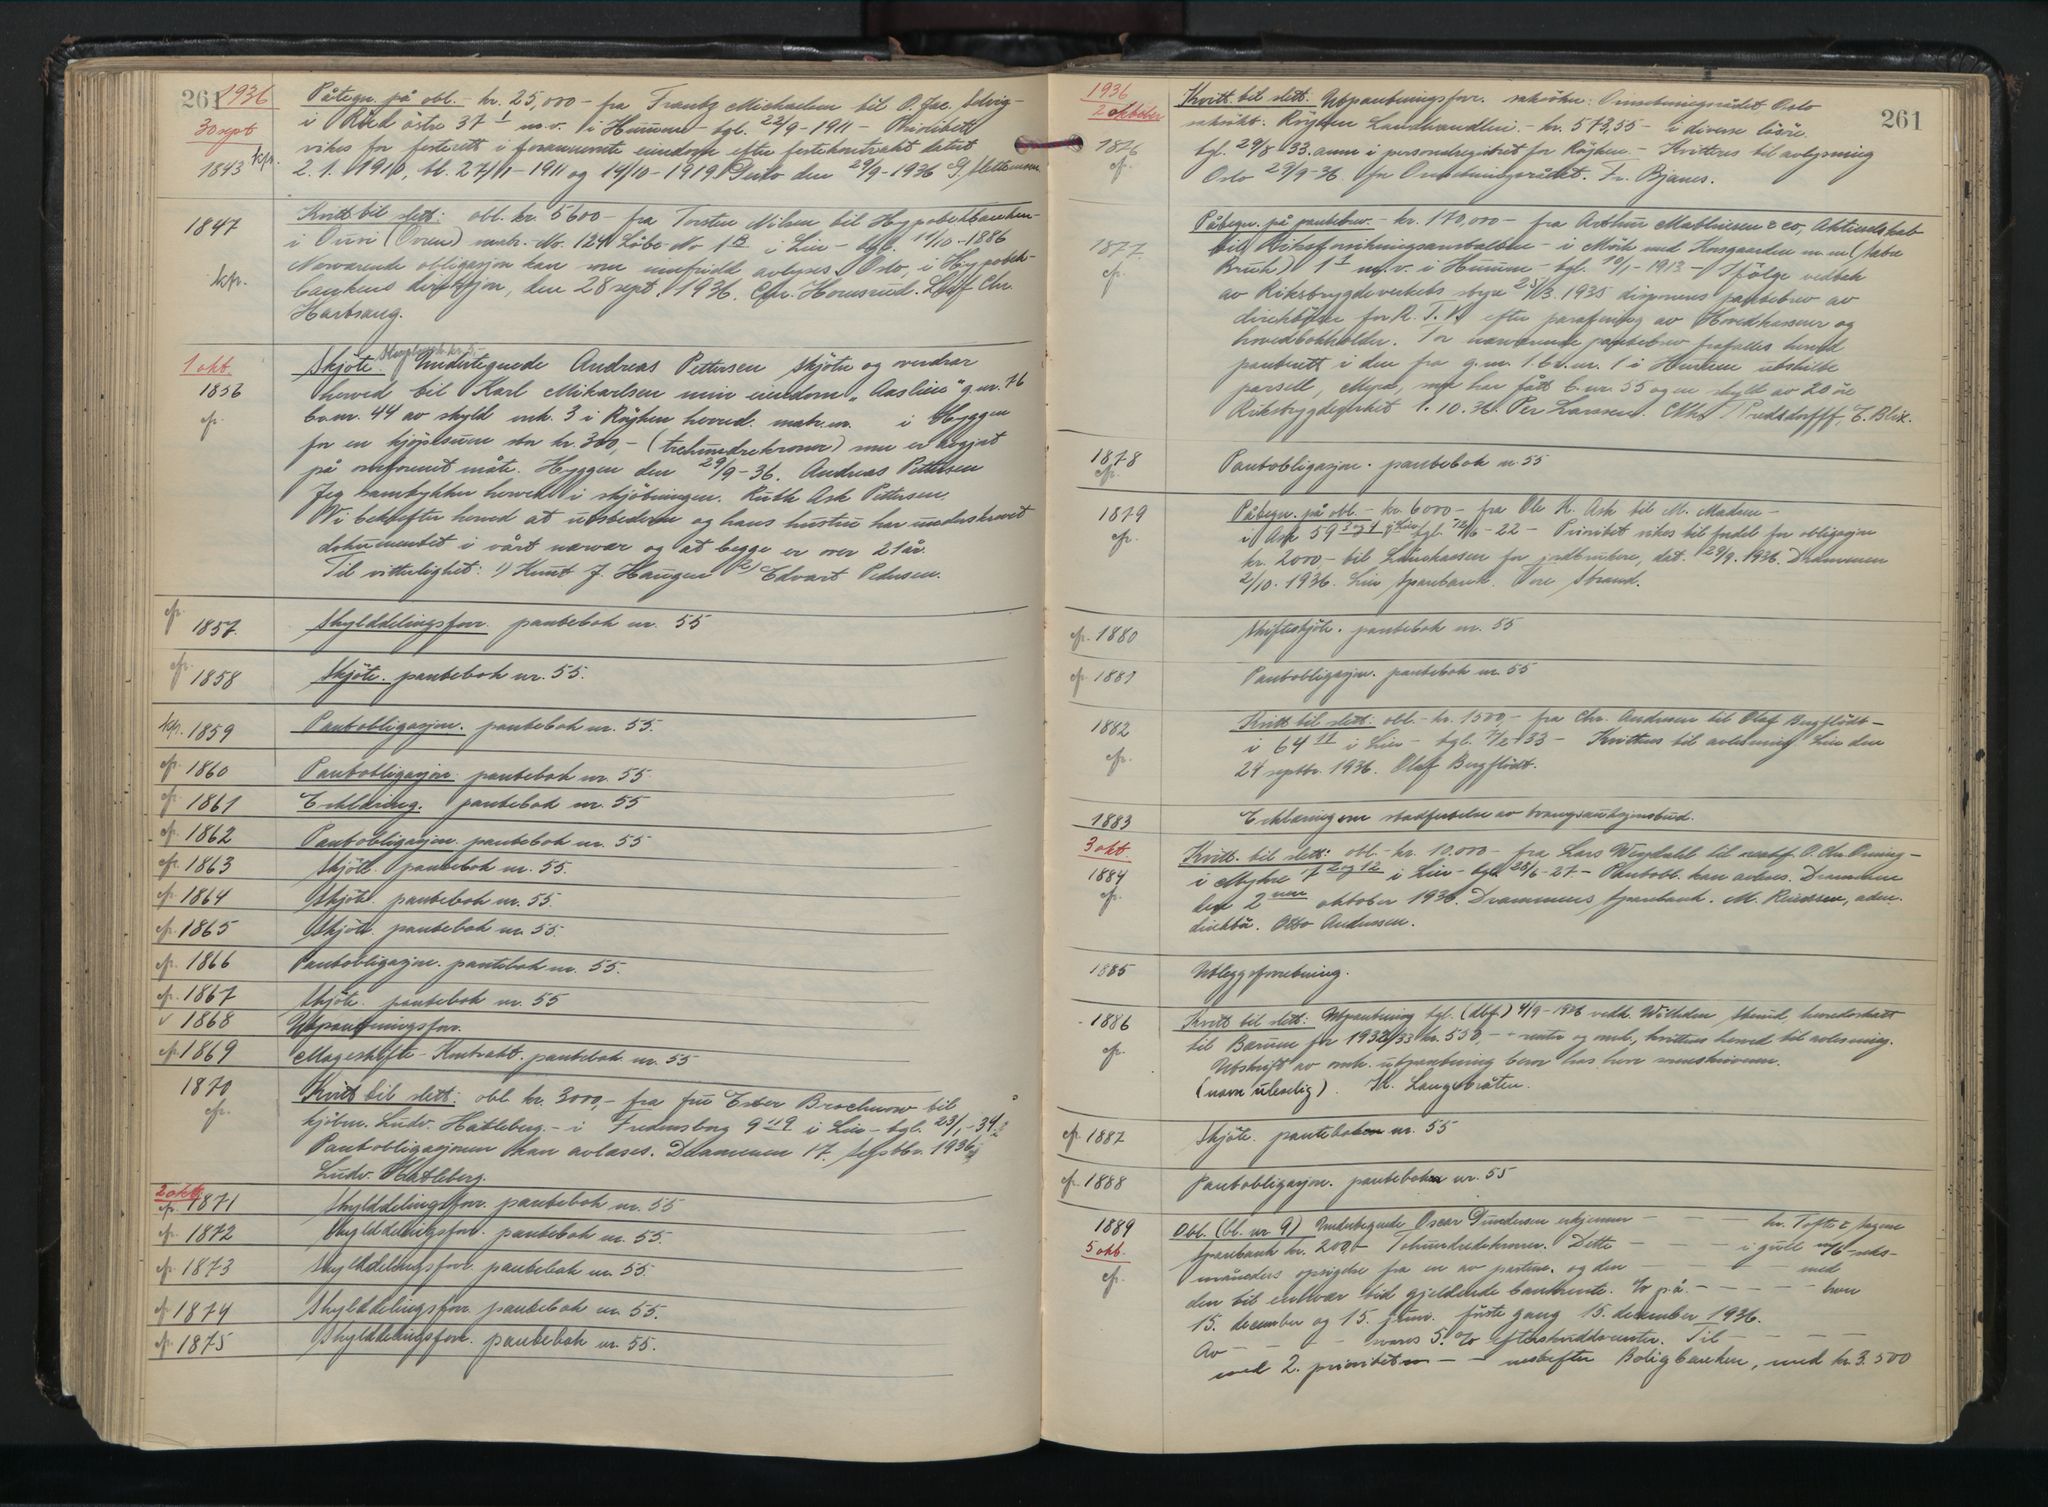 261
1936
30 sept
1843
kfr.
Påtegn. på obl. - kr. 25,000 - fra Frantz Michaelsen til O. Jac. Selvig -
i Rød østre 37 1 m.v. i Hurum - tgl. 22/9 - 1911 - Prioritett
vikes for festerett i forannevnte eiendom efter festekontrakt datert
2. 1. 1910, tl. 27/1 - 1911 og 14/10 - 1919. Oslo den 29/9 - 1936
1847
kfr.
Kvitt til slett: obl. kr. 5600 - fra Torsten Nilsen til Hypotekbanken -
i Ouri (Oven) matr. - No. 124 Løbe No 1 i Lier - tgl. 11/10 - 1886
Nærværende obligasjon kan som innfridd avlyses. Oslo, i Hypotek-
bankens direksjon, den 28 sept. 1936. Chr. Hornsrud. Leif Chr.
Hartsang.
1 okt.
1856
cfr.
Skjöte. Undertegnede Andreas Pettersen skjöter og overdrar
herved til Karl Mikarlsen min eiendom "Aaslien" g.nr. 76
br.nr. 44 av skyld mk. 3 i Röyken herred. matr. nr. i Hyggen
for en kjöpesum stor kr 300,- (trehundrekroner) som er avgjort
på omforenet måte. Hyggen den 29/9 - 36. Andreas Pettersen
Jeg samtykker herved i skjötningen. Ruth Ask Pettersen.
Vi bekrefter herved at utstederen og hans hustru har underskrevet
dokumentet i vårt nærvær og at begge er over 21 år.
Til vitterlighet: 1) Knut J. Haugen 2) Edvart Pedersen.
cfr. 1857. Skylddelingsforr. pantebok nr. 55
cfr. 1858 Skjöte. pantebok nr. 55.
kfr. 1859 Pantobligasjon. pantebok nr. 55.
cfr. 1860 Pantobligasjon. pantebok nr. 55.
cfr. 1861 Erklæring. pantebok nr. 55
cfr. 1862 Pantobligasjon. pantebok nr. 55.
cfr. 1863 Skjöte. pantebok nr. 55.
cfr. 1864 Skjöte. pantebok nr. 55.
cfr. 1865 Skjöte. pantebok nr. 55.
cfr. 1866 Pantobligasjon. pantebok nr. 55.
cfr. 1867 Skjöte. pantebok nr. 55
v 1868 Utpantningsforr.
cfr. 1869 Mageskifte - Kontrakt. pantebok nr. 55
1870
cfr.
Kvitt til slett: obl. kr. 3000,- fra fru Ester Brochmow til
kjöbm. Ludv. Hatleberg. - i Fredensborg 9 119 i Lier - tgl. 23/1 - 34.
Pantobligasjonen kan avlæses. Drammen 17. septbr. 1936
Ludv. Hatleberg.
2 okt.
cfr. 1871 Skylddelingsforr. pantebok nr. 55
cfr. 1872 Skylddelingsforr. pantebok nr. 55.
cfr. 1873 Skylddelingsforr. pantebok nr. 55.
cfr. 1874 Skylddelingsforr. pantebok nr. 55.
cfr. 1875 Skylddelingsforr. pantebok nr. 55.
261
1936
2 oktober
1876
cfr.
Kvitt. til slett: Utpantningsforr. saksöker: Omsetningsrådet, Oslo
saksökt: Röyken Landhandleri. - kr. 573,55 - i diverse lösöre
tgl. 29/8 33. anm i personregistret for Röyken. - Kvitteres til avlysning
Oslo 29/9 - 36. for Omsetningsrådet. Fr. Bjanes.
1877
cfr.
Påtegn. på pantebrev. - kr. 170,000 - fra Arthur Mathiesen & co, Aktieselskab
til Riksforsikringsanstalten - i Moik med Korsgaarden m.m (
Bruk) 1 1 m.v. i Hurum - tgl. 10/1 - 1913. - Ifölge vedtak
av Rikstrygdeverkets styre 25/3. 1935 disponeres pantebrev av
direktören for R. T. V. efter parafering av Hovedkasserer og
hovedbokholder. For nærværende pantebrev frafalles herved
panterett i den fra g.nr. 1. b.nr. 1 i Hurum utskilte
parsell, Myra, som har fått b.nr. 55 og en skyld av 20 öre
Rikstrygdeverket 1. 10. 36. Per Larssen. E. Blix.
1878
cfr.
Pantobligasjon. pantebok nr. 55
1879
cfr.
Påtegn. på obl. - kr. 6000 - fra Ole K. Ask til M. Madsen -
i Ask 59 3 og 1 i Lier tgl. 12/6 - 22 - Prioritet vikes til fordel for obligasjon
kr. 2000,- til Lånekassen for jordbrukere, dat. 29/9. 1936. Drammen
2/10. 1936. Lier Sparebank. Tore Strand.
cfr. 1880 Skifteskjöte. pantebok nr. 55
cfr. 1881 Pantobligasjon. pantebok nr. 55
1882
cfr.
Kvitt til slett: obl. - kr. 1500,- fra Chr. Andersen til Olaf Bergflödt -
i 64 11 i Lier - tgl. 7/2 33 - Kvitteres til avlesning. Lier den
24 septbr. 1936. Olaf Bergflödt.
1883 Erklæring om stadfestelse av tvangsauksjonsbud.
3 okt.
1884
cfr.
Kvitt. til slett: obl. - kr. 10.000 - fra Lars Weydahl til
i Myhre 7 2 og 12 i Lier - tgl. 28/6 - 27 - Pantobl. kan avleses. Drammen
den 2 nen oktober 1936. Drammens Sparebank. M. Reiersen, adm.
direktör. Otto Anderssen.
1885 Utleggsforretning.
1886
cfr.
Kvitt til slett: Utpantning tgl. (dbf) 4/9 - 1936 vedk. herredsskatt
til Bærum for 1932/33 kr. 550,- + renter og omk., kvitteres herved til avlesning.
Utskrift av omh. utpantning beror hos herr sorenskriveren.
(navn uleselig). K. Langebråten.
cfr. 1887 Skjöte. pantebok nr. 55
cfr. 1888 Pantobligasjon. pantebok nr. 55
1889
5 okt.
cfr.
Obl. (bl. nr 9) Undertegnede Oscar Gundersen erkjenner - - - hr. Tofte &
Sparebank kr. 200,- Tohundredekroner. Dette - - - i gull m/6 - seks -
måneders opsigelse fra en av partene, og den - - - med
den til enhver tid gjeldende bankrente. % på. - - - - hver
15. december og 15. juni. förste gang 15. december 1936.
Av - - - svares 5. % efterskuddsrenter. Til - - - -
med 2. prioritet - - næstefter Boligbanken, med kr. 3.500